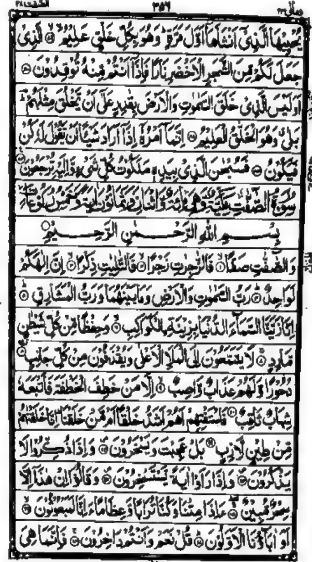 ومالی ٢٣ ٣٥٦ الصّٰفّٰت ٣٧
يُحْيِيْهَا الَّذِيْٓ اَنْشَاَهَآ اَوَّلَ مَرَّةٍ ؕ وَهُوَ بِكُلِّ خَلْقٍ عَلِيْمُ ۙ الَّذِيْ
جَعَلَ لَكُمْ مِّنَ الشَّجَرِ الْاَخْضَرِ نَارًا فَاِذَآ اَنْتُمْ مِّنْهُ تُوْقِدُوْنَ
اَوَلَيْسَ الَّذِيْ خَلَقَ السَّمٰوٰتِ وَالْاَرْضَ بِقٰدِرٍ عَلٰٓى اَنْ يَّخْلُقَ مِثْلَهُمْ ؕ
بَلٰى ۗ وَهُوَ الْخَلّٰقُ الْعَلِيْمُ اِنَّمَآ اَمْرُهٗٓ اِذَآ اَرَادَ شَيْـًٔا اَنْ يَّقُوْلَ لَهٗ كُنْ
فَيَكُوْنُ فَسُبْحٰنَ الَّذِيْ بِيَدِهٖ مَلَكُوْتُ كُلِّ شَيْءٍ وَّاِلَيْهِ تُرْجَعُوْنَ
سُوْرَةُ الصّٰٓفّٰتِ مَكِّيَّةٌ وَّهِيَ مِائَةٌ وَّاثْنَتَانِ وَثَمَانُوْنَ اٰيَةً وَّخَمْسُ رُكُوْعَاتٍ
بِسْمِ اللّٰهِ الرَّحْمٰنِ الرَّحِيْمِ
وَالصّٰٓفّٰتِ صَفًّا فَالزّٰجِرٰتِ زَجْرًا فَالتّٰلِيٰتِ ذِكْرًا اِنَّ اِلٰهَكُمْ
لَوَاحِدٌ رَبُّ السَّمٰوٰتِ وَالْاَرْضِ وَمَا بَيْنَهُمَا وَرَبُّ الْمَشَارِقِ
اِنَّا زَيَّنَّا السَّمَآءَ الدُّنْيَا بِزِيْنَةِ ࣙالْكَوَاكِبِ وَحِفْظًا مِّنْ كُلِّ شَيْطٰنٍ
مَّارِدٍ لَا يَسَّمَّعُوْنَ اِلَى الْمَلَاِ الْاَعْلٰى وَيُقْذَفُوْنَ مِنْ كُلِّ جَانِبٍ
دُحُوْرًا وَّلَهُمْ عَذَابٌ وَّاصِبٌ اِلَّا مَنْ خَطِفَ الْخَطْفَةَ فَاَتْبَعَهٗ
شِهَابٌ ثَاقِبٌ فَاسْتَفْتِهِمْ اَهُمْ اَشَدُّ خَلْقًا اَمْ مَّنْ خَلَقْنَا ؕ اِنَّا خَلَقْنٰهُمْ
مِّنْ طِيْنٍ لَّازِبٍ بَلْ عَجِبْتَ وَيَسْخَرُوْنَ وَاِذَا ذُكِّرُوْا لَا
يَذْكُرُوْنَ وَاِذَا رَاَوْا اٰيَةً يَّسْتَسْخِرُوْنَ وَقَالُوْٓا اِنْ هٰذَآ اِلَّا
سِحْرٌ مُّبِيْنٌ ءَاِذَا مِتْنَا وَكُنَّا تُرَابًا وَّعِظَامًا ءَاِنَّا لَمَبْعُوْثُوْنَ
اَوَاٰبَآؤُنَا الْاَوَّلُوْنَ قُلْ نَعَمْ وَاَنْتُمْ دَاخِرُوْنَ فَاِنَّمَا هِيَ